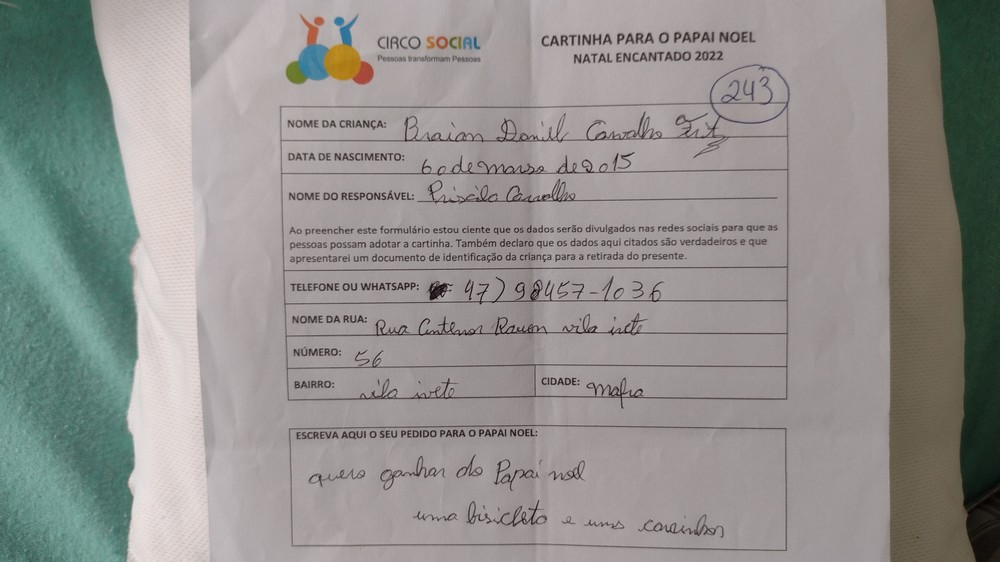 CIRCO SOCIAL
Pessoas transformam Pessoas
CARTINHA PARA O PAPAI NOEL
NATAL ENCANTADO 2022
243
NOME DA CRIANÇA: Braian Daniel Carvalho
DATA DE NASCIMENTO: 60 de marso de 2015
NOME DO RESPONSÁVEL: Priscila Carvalho
Ao preencher este formulário estou ciente que os dados serão divulgados nas redes sociais para que as
pessoas possam adotar a cartinha. Também declaro que os dados aqui citados são verdadeiros e que
apresentarei um documento de identificação da criança para a retirada do presente.
TELEFONE OU WHATSAPP: 47) 98457-1036
NOME DA RUA: Rua Antenor vila ivete
NÚMERO: 56
BAIRRO: vila ivete
CIDADE: Mafra
ESCREVA AQUI O SEU PEDIDO PARA O PAPAI NOEL:
quero ganhar do Papai noel
uma bisicleta e uns carinhos